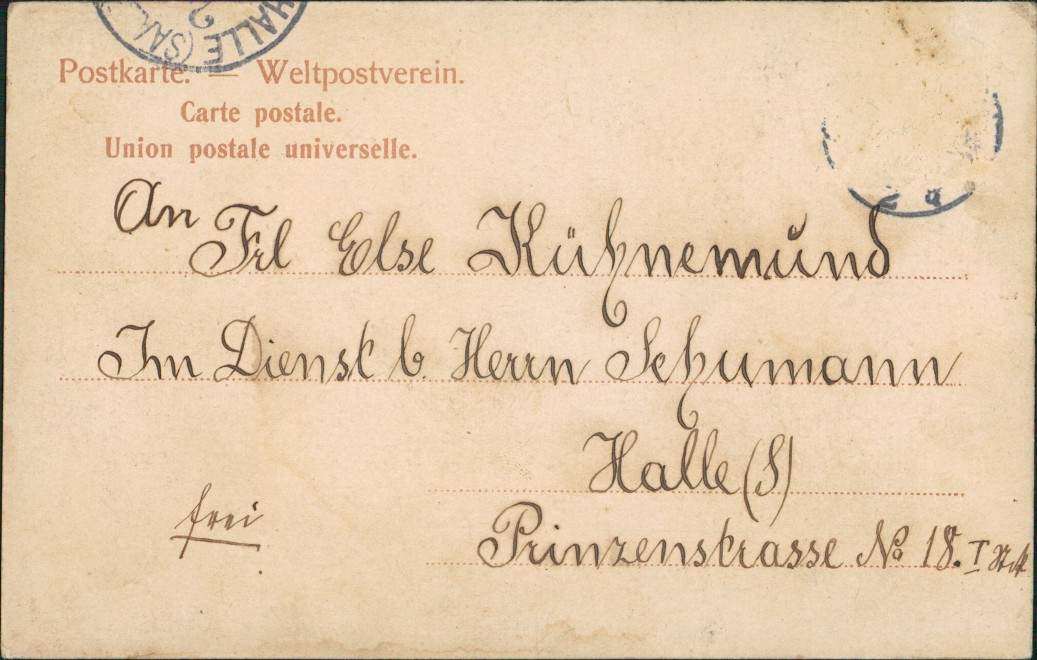 HALLE (SAA
2
Postkarte. — Weltpostverein.
Carte postale.
Union postale universelle.
An
Frl Else Kühnemund
Im Dienst b. Herrn Schumann
Halle (S)
frei
Prinzenstrasse No 18. I